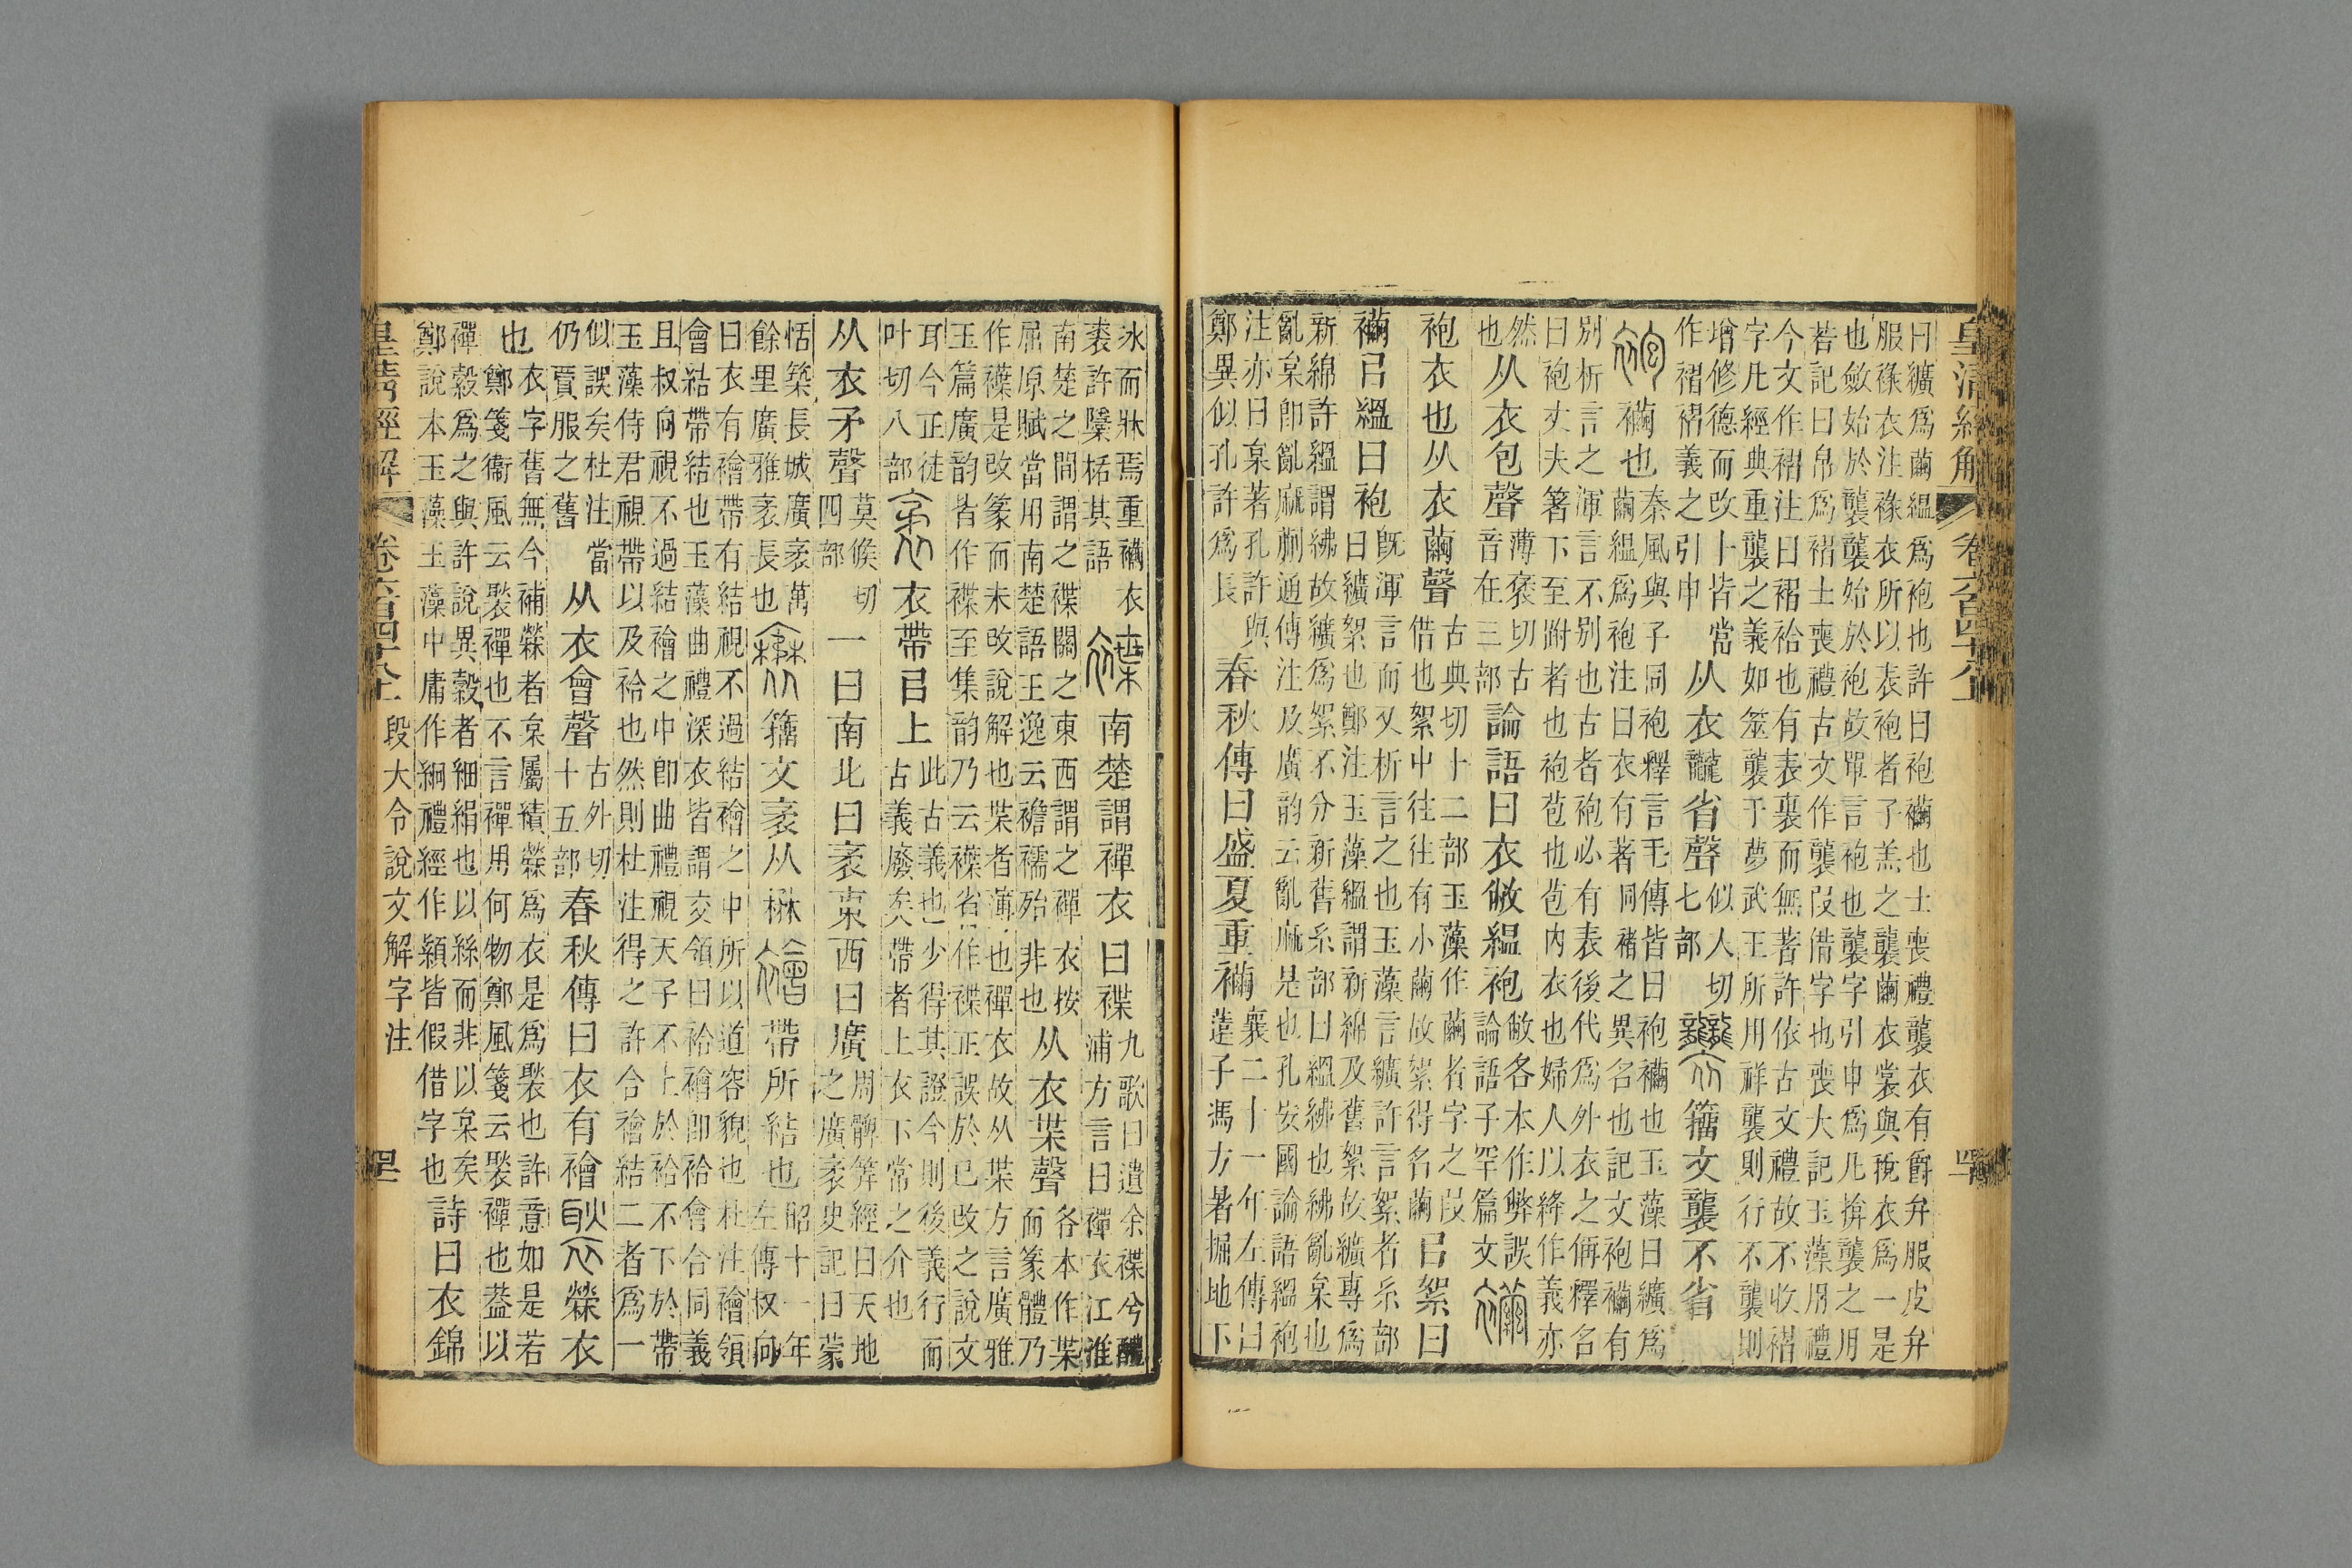 皇清經解　卷六百四十八上　四十一
曰纊爲繭縕爲袍也許曰袍襺也士喪禮襲衣有爵弁服皮弁
服褖衣注褖衣所以表袍者子羔之襲繭衣裳與挩衣爲一是
也斂始於襲襲始於袍故單言袍也襲字引申爲凡揜襲之用
若記曰帛爲褶士喪禮古文作襲叚借字也喪大記玉藻用禮
今文作褶注曰褶袷也有表裏而無著許依古文禮故不收褶
字凡經典重襲之義如筮襲于夢武王所用祥襲則行不襲則
增修德而改卜皆當
作褶褶義之引申
从衣龖省聲
似入切
七部
籒文襲不省
襺也
秦風與子同袍釋言毛傳皆曰袍襺也玉藻曰纊爲
繭縕爲袍注曰衣有著同褚之異名也記文袍襺有
別析言之渾言不別也古者袍必有表後代爲外衣之偁釋名
曰袍丈夫箸下至跗者也袍苞也苞内衣也婦人以絳作義亦
然
也
从衣包聲
薄褒切古
音在三部
論語曰衣敝縕袍
敝各本作弊誤
論語子罕篇文
袍衣也从衣繭聲
古典切十二部玉藻作繭者字之叚
借也絮中往往有小繭故絮得名繭
㠯絮曰
襺㠯縕曰袍
旣渾言而又析言之也玉藻言纊許言絮者糸部
曰纊絮也鄭注玉藻縕謂新綿及舊絮故纊專爲
新綿許縕謂紼故纊爲絮不分新舊糸部曰縕紼也紼亂枲也
亂枲卽亂麻蒯通傳注及廣韵云亂麻是也孔安國論語縕袍
注亦曰枲著孔許與
鄭異似孔許爲長
春秋傳曰盛夏重襺
襄二十一年左傳曰
薳子馮方暑掘地下
氷而牀焉重襺衣
裘許檃栝其語
南楚謂襌衣曰褋
九歌曰遺余褋兮醴
浦方言曰襌衣江淮
南楚之間謂之褋關之東西謂之襌衣按
屈原賦當用南楚語王逸云襜襦殆非也
从衣枼聲
各本作枼
而篆體乃
作襟是改篆而未改說解也枼者薄也襌衣故从枼方言廣雅
玉篇廣韵皆作褋至集韵乃云襟省作褋正誤於已改之說文
耳今正徒
叶切八部
衣帶㠯上
此古義也少得其證今則後義行而
古義廢矣帶者上衣下常之介也
从衣矛聲
莫候切
四部
一曰南北曰袤東西曰廣
周髀筭經曰天地
之廣袤史記曰蒙
恬築長城廣袤萬
餘里廣雅袤長也
籒文袤从楙
帶所結也
昭十一年
左傳叔向
曰衣有襘帶有結視不過結襘之中所以道容貌也杜注襘領
會結帶結也玉藻曲禮深衣皆謂交領曰袷襘卽袷會合同義
且叔向視不過結襘之中卽曲禮視天子不上於袷不下於帶
玉藻侍君視帶以及袷也然則杜注得之許合襘結二者爲一
似誤矣杜注當
仍賈服之舊
从衣會聲
古外切
十五部
春秋傳曰衣有襘
檾衣
也
衣字舊無今補檾者枲屬績檾爲衣是爲褧也許意如是若
鄭箋衞風云褧襌也不言襌用何物鄭風箋云褧襌也葢以
襌縠爲之與許說異縠者細絹也以絲而非以枲矣
鄭說本玉藻玉藻中庸作絅禮經作穎皆假借字也
詩曰衣錦
皇清經解　卷六百四十八上　段大令說文解字注　四十二